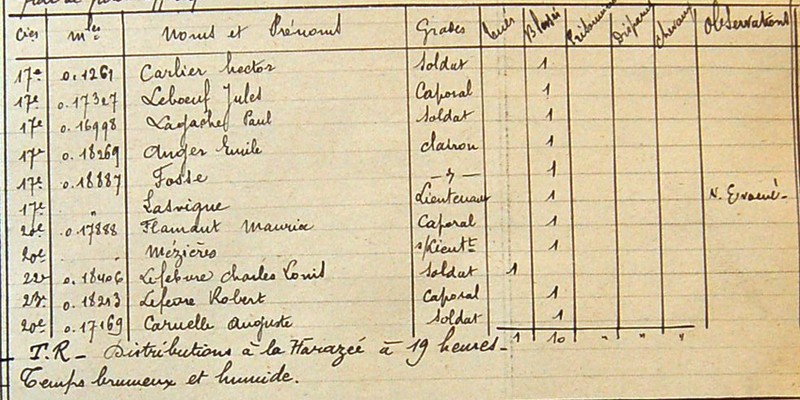 Cies Mles Noms et Prénoms Grades Tués Blessés Prisonniers Disparus Chevaux Observations
17e o.1261 Carlier hector Soldat 1
17e o.17327 Leboeuf Jules Caporal 1
17e o.16998 Lagache Paul Soldat 1
17e o.18269 Anger Emile clairon 1
17e o.18887 Fosse — " — 1
17e " Lasvigne Lieutenant 1 N. Evacué-
20e o.17888 Flamant Maurice Caporal 1
20e . Mézières s/Lieutt 1
22e o.18406 Lefebvre Charles Louis Soldat 1
23e o.18213 Lefevre Robert Caporal 1
20e o.17169 Caruelle Auguste Soldat 1
1 10 " " "
T.R - Distributions à la Harazée à 19 heures -
Temps brumeux et humide.